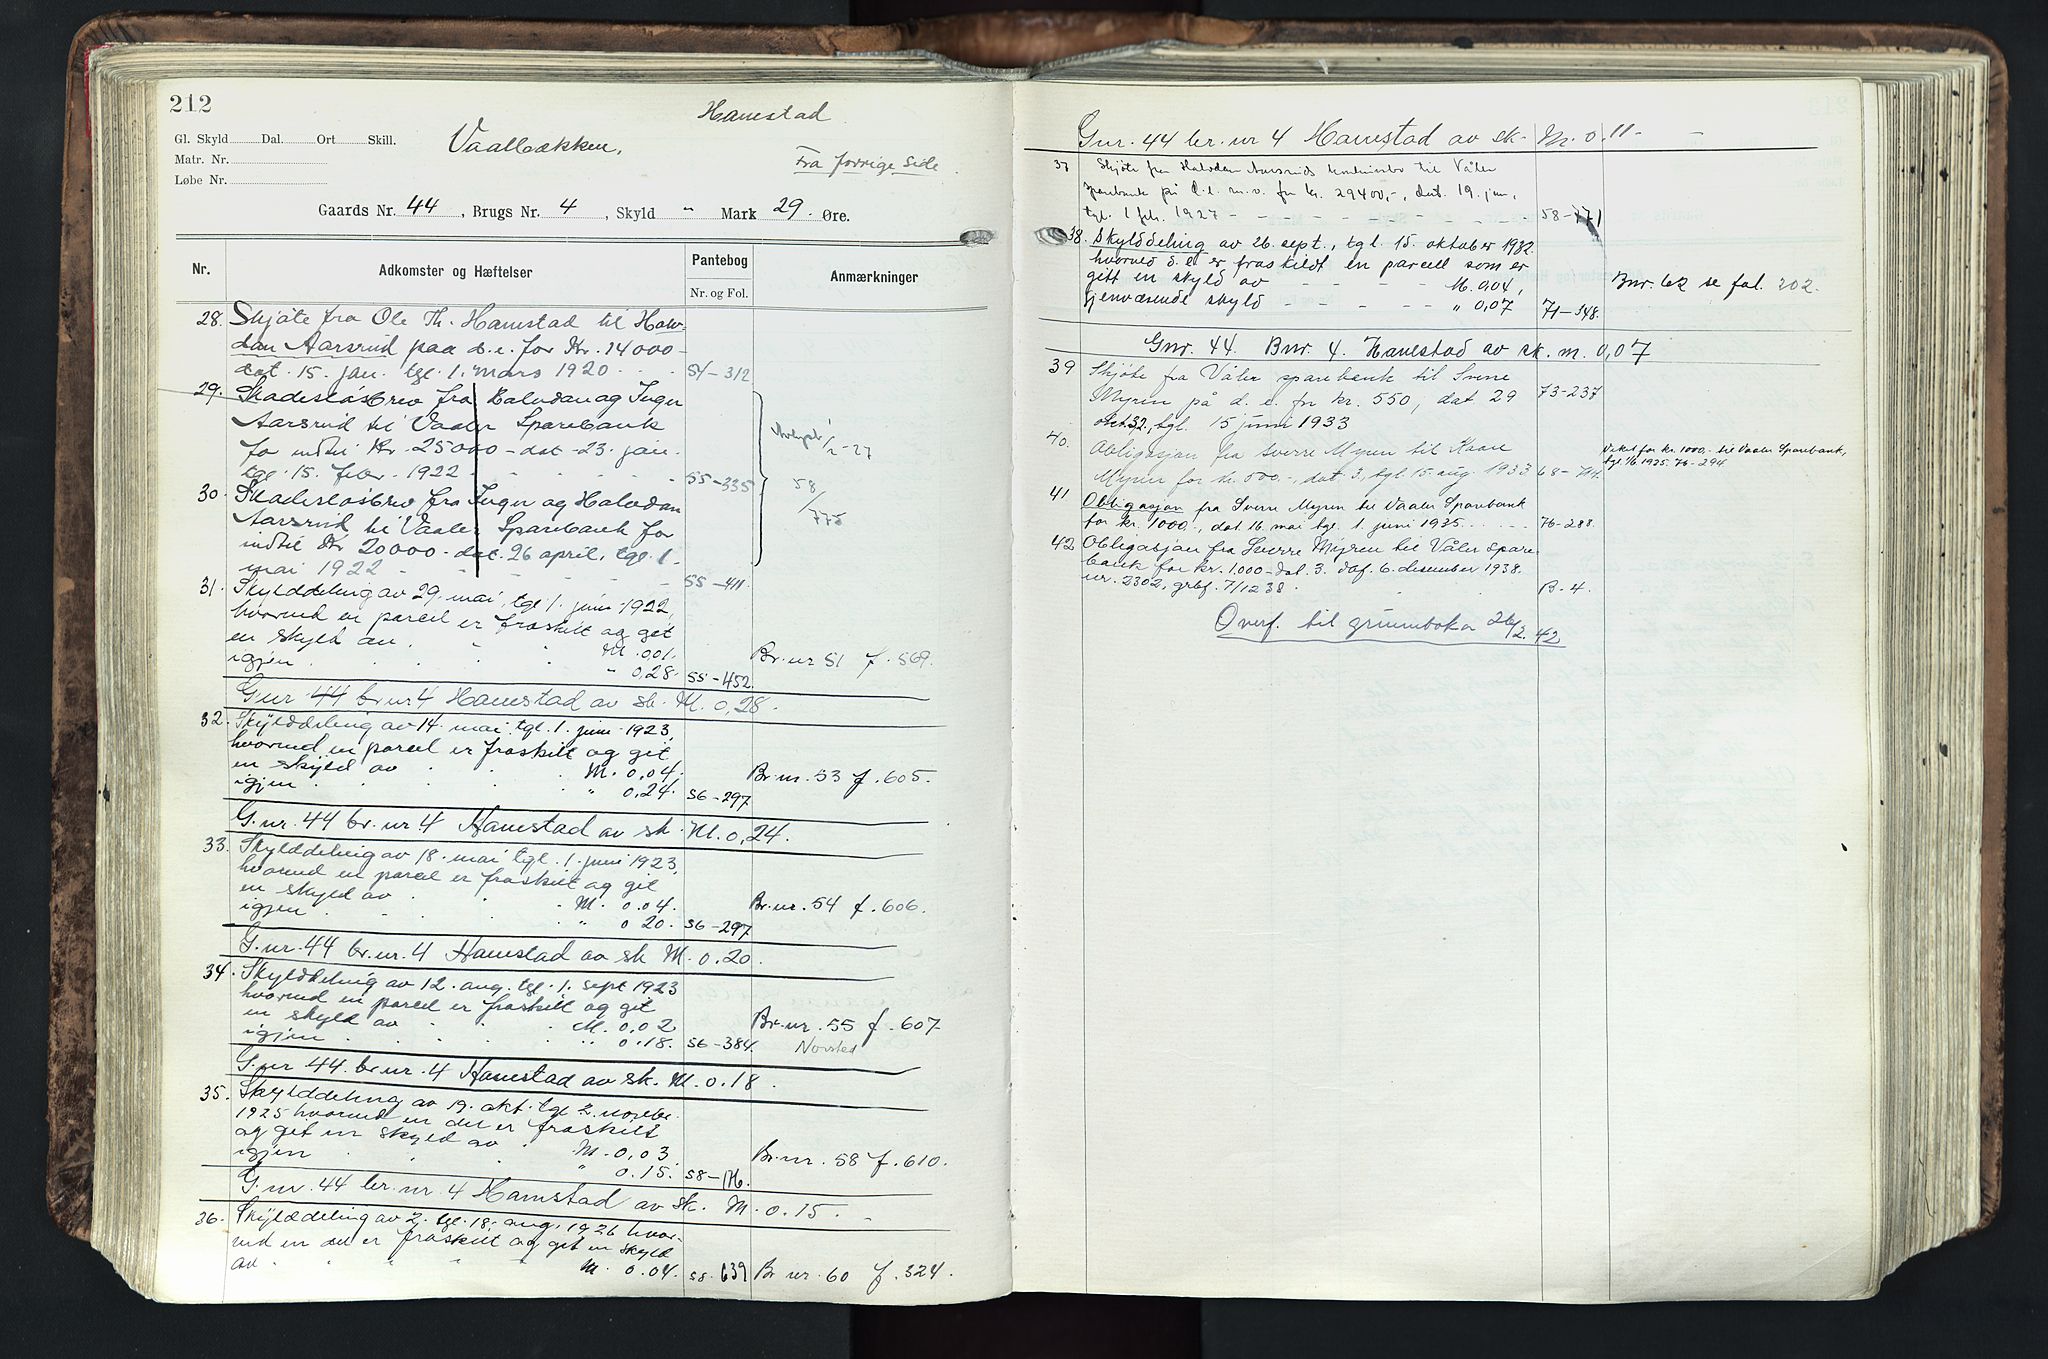 212
Hanestad
Gl. Skyld Dal. Ort Skill.
Matr. Nr.
Løbe Nr.
Vaalbækken,
Fra forrige side
Gaards Nr. 44, Brugs Nr. 4, Skyld " Mark 29 Øre.
Nr. Adkomster og Hæftelser Pantebog Nr. og Fol. Anmærkninger
28. Skjøte fra Ole Th. Hanestad til Halv-
dan Aarsrud paa d. e. for Kr. 14000 -
dat. 15. jan. tgl. 1. mars 1920 54-312
29. Skadesløsbrev fra Halvdan og Inger
Aarsrud til Vaaler Sparebank
for indtil Kr. 25000 - dat. 23. jan.
tgl. 15. febr. 1922 55-335
30. Skadesløsbrev fra Inger og Halvdan
Aarsrud til Vaaler Sparebank for
indtil Kr 20000 - dat. 26 april, tgl. 1.
mai 1922 55-411
Avlyst 1/2-27
58/775
31. Skylddeling av 29. mai, tgl. 1. juni 1922,
hvorved en parcel er fraskilt og git
en skyld av M. 0,01.
igjen " 0,28. 55-452. Br. nr 51 f. 569.
Gnr 44 br. nr 4 Hanestad av sk. M. 0,28.
32. Skylddeling av 14. mai tgl. 1. juni 1923,
hvorved en parcel er fraskilt og git
en skyld av M. 0,04.
igjen " 0,24. 56-297 Br. nr. 53 f. 605.
G. nr. 44 br. nr 4 Hanestad av sk. M. 0,24.
33. Skylddeling av 18. mai tgl. 1. juni 1923,
hvorved en parcel er fraskilt og git
en skyld av M. 0.04.
igjen " 0 20. 56-297 Br. nr. 54 f. 606.
G. nr. 44 br. nr. 4 Hanestad av sk M. 0.20.
34. Skylddeling av 12. aug. tgl. 1. sept 1923
hvorved en parcel er fraskilt og git
en skyld av M. 0,02
igjen " 0.18. 56-384. Br. nr. 55 f. 607
Norsted
G. nr 44. br. nr. 4 Hanestad av sk. M. 0.18.
35. Skylddeling av 19. okt. tgl 2. novebr.
1925 hvorved en del er fraskilt
og git en skyld av M. 0,03
igjen " 0.15. 58-176. Br. nr. 58 f. 610.
G. nr. 44 br. nr. 4 Hanestad av sk. M. 0.15.
36. Skylddeling av 2. tgl. 18. aug. 1926 hvor-
ved en del er fraskilt og git en skyld
av M. 0.04. 58.639 Br nr. 60 f. 324.
Gnr. 44 br. nr 4 Hanestad av sk. M. 0.11-
37 Skjøte fra Halvdan Aarsruds konkursbo til Våler
Sparebank på d. e. m. v. for kr. 29400,-, dat. 19. jan,
tgl. 1 feb. 1927 58-771
38. Skylddeling av 26. sept., tgl. 15. oktober 1932
hvorved d. e. er fraskildt en parcell som er
gitt en skyld av M. 0,04,
gjenværende skyld " 0,07 71-348. Bnr. 62 se fol. 202.
Gnr. 44. Bnr. 4. Hanestad av sk. m. 0,07
39 Skjøte fra Våler sparebank til Sverre
Myren på d. e. for kr. 550, dat 29 73-237
okt. 32, tgl. 15 juni 1933
40. Obligasjon fra Sverre Myren til Kaare
Myren for kr. 500.-, dat. 3, tgl. 15. aug. 1933 68-714.
Veket for kr. 1000,- til Vaaler Sparebank,
tgl. 1/6 1935. 76-294
41 Obligasjon fra Sverre Myren til Vaaler Sparebank
for kr. 1000., dat. 16. mai tgl. 1 juni 1935 76-288.
42 Obligasjon fra Sverre Myren til Våler spare-
bank for kr. 1.000 - dat. 3. daf. 6. desember 1938.
nr. 2302, grbf. 7/12 38. B. 4.
Overf. til grunnboka 26/2. 42